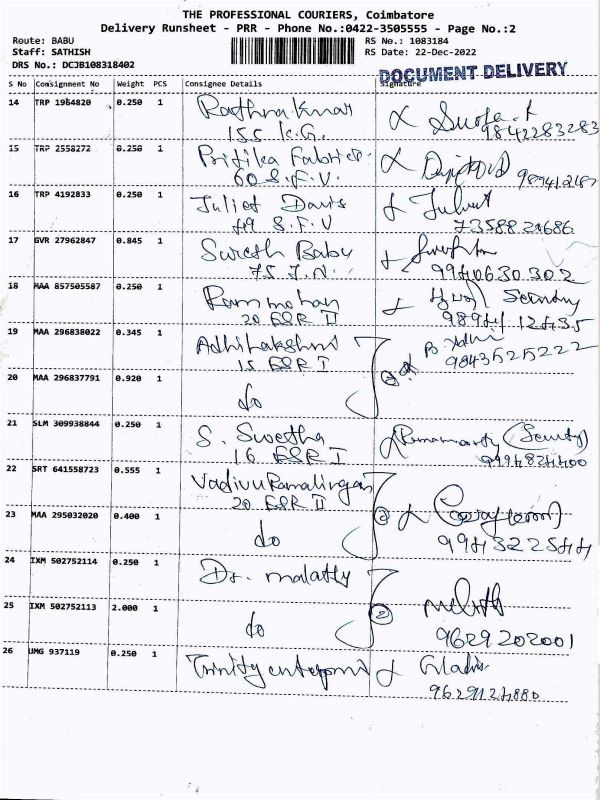 THE PROFESSIONAL COURIERS, Coimbatore
Delivery Runsheet - PRR - Phone No.:0422-3505555 - Page No.:2
Route: BABU
RS No.: 1083184
Staff: SATHISH
RS Date: 22-Dec-2022
DRS No.: DCJB108318402
DOCUMENT DELIVERY
S No Consignment No Weight PCS Consignee Details Signature
14 TRP 1964820 0.250 1 Rathna Kumar
155 K.G. 9842283283
15 TRP 2558272 0.250 1 Pritika Fabrics
60 S.F.V.
16 TRP 4192833 0.250 1 Juliet Davis
49 S.F.V
17 GVR 27962847 0.845 1 Suresh Babu
75 J.N. 9940630302
18 MAA 857505587 0.250 1 Rammohan Security
20 ESR II
19 MAA 296838022 0.345 1 Adhilakshmi
15 ESR I 9843525222
20 MAA 296837791 0.920 1 do
21 SLM 309938844 0.250 1 S. Swetha (Security)
16 ESR I
22 SRT 641558723 0.555 1 Vadivu Ramalingam
20 ESR II
23 MAA 295032020 0.400 1 do 9943222544
24 IXM 502752114 0.250 1 Dr. Malathy
25 IXM 502752113 2.000 1 do 9629202001
26 UMG 937119 0.250 1 Trinity
9629124880